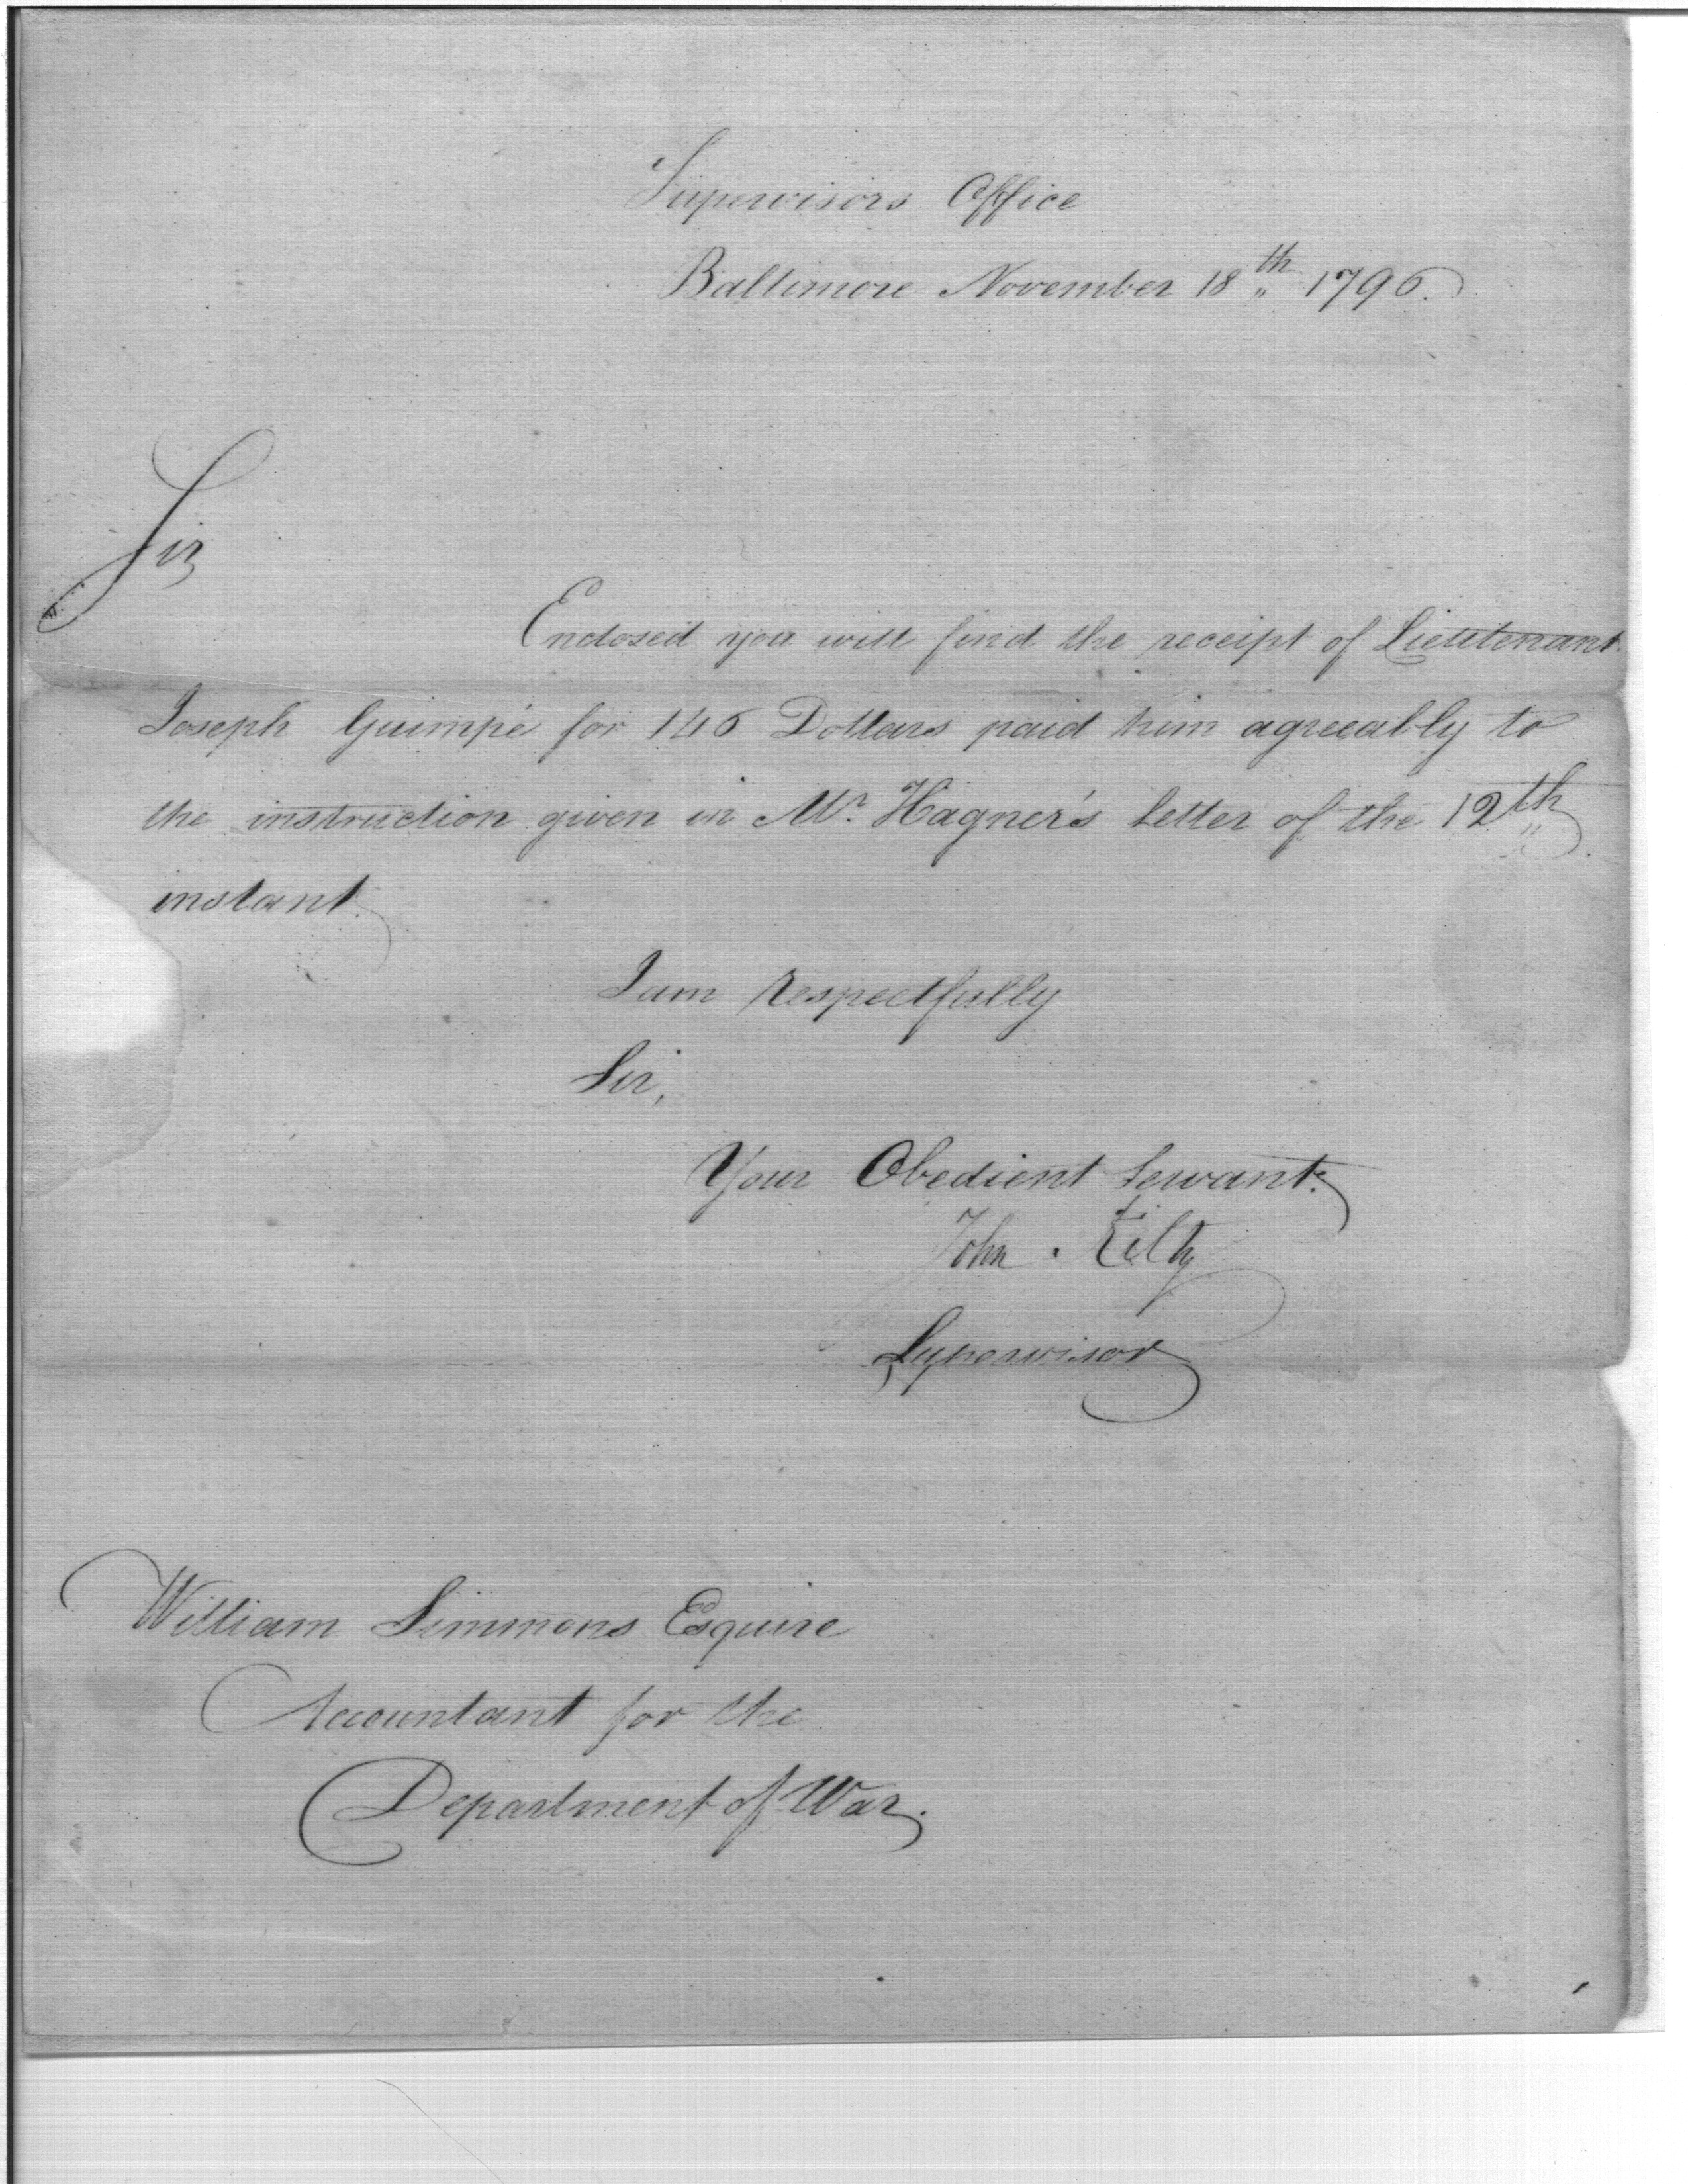 Supervisors Office
Baltimore November 18th 1796.
Sir
Enclosed you will find the receipt of Lieutenant
Joseph Guimpé for 146 Dollars paid him agreeably to
the instruction given in Mr. Hagner's letter of the 12th
instant.
I am Respectfully
Sir,
Your Obedient Servant.
John Kilty
Supervisor
William Simmons Esquire
Accountant for the
Department of War.